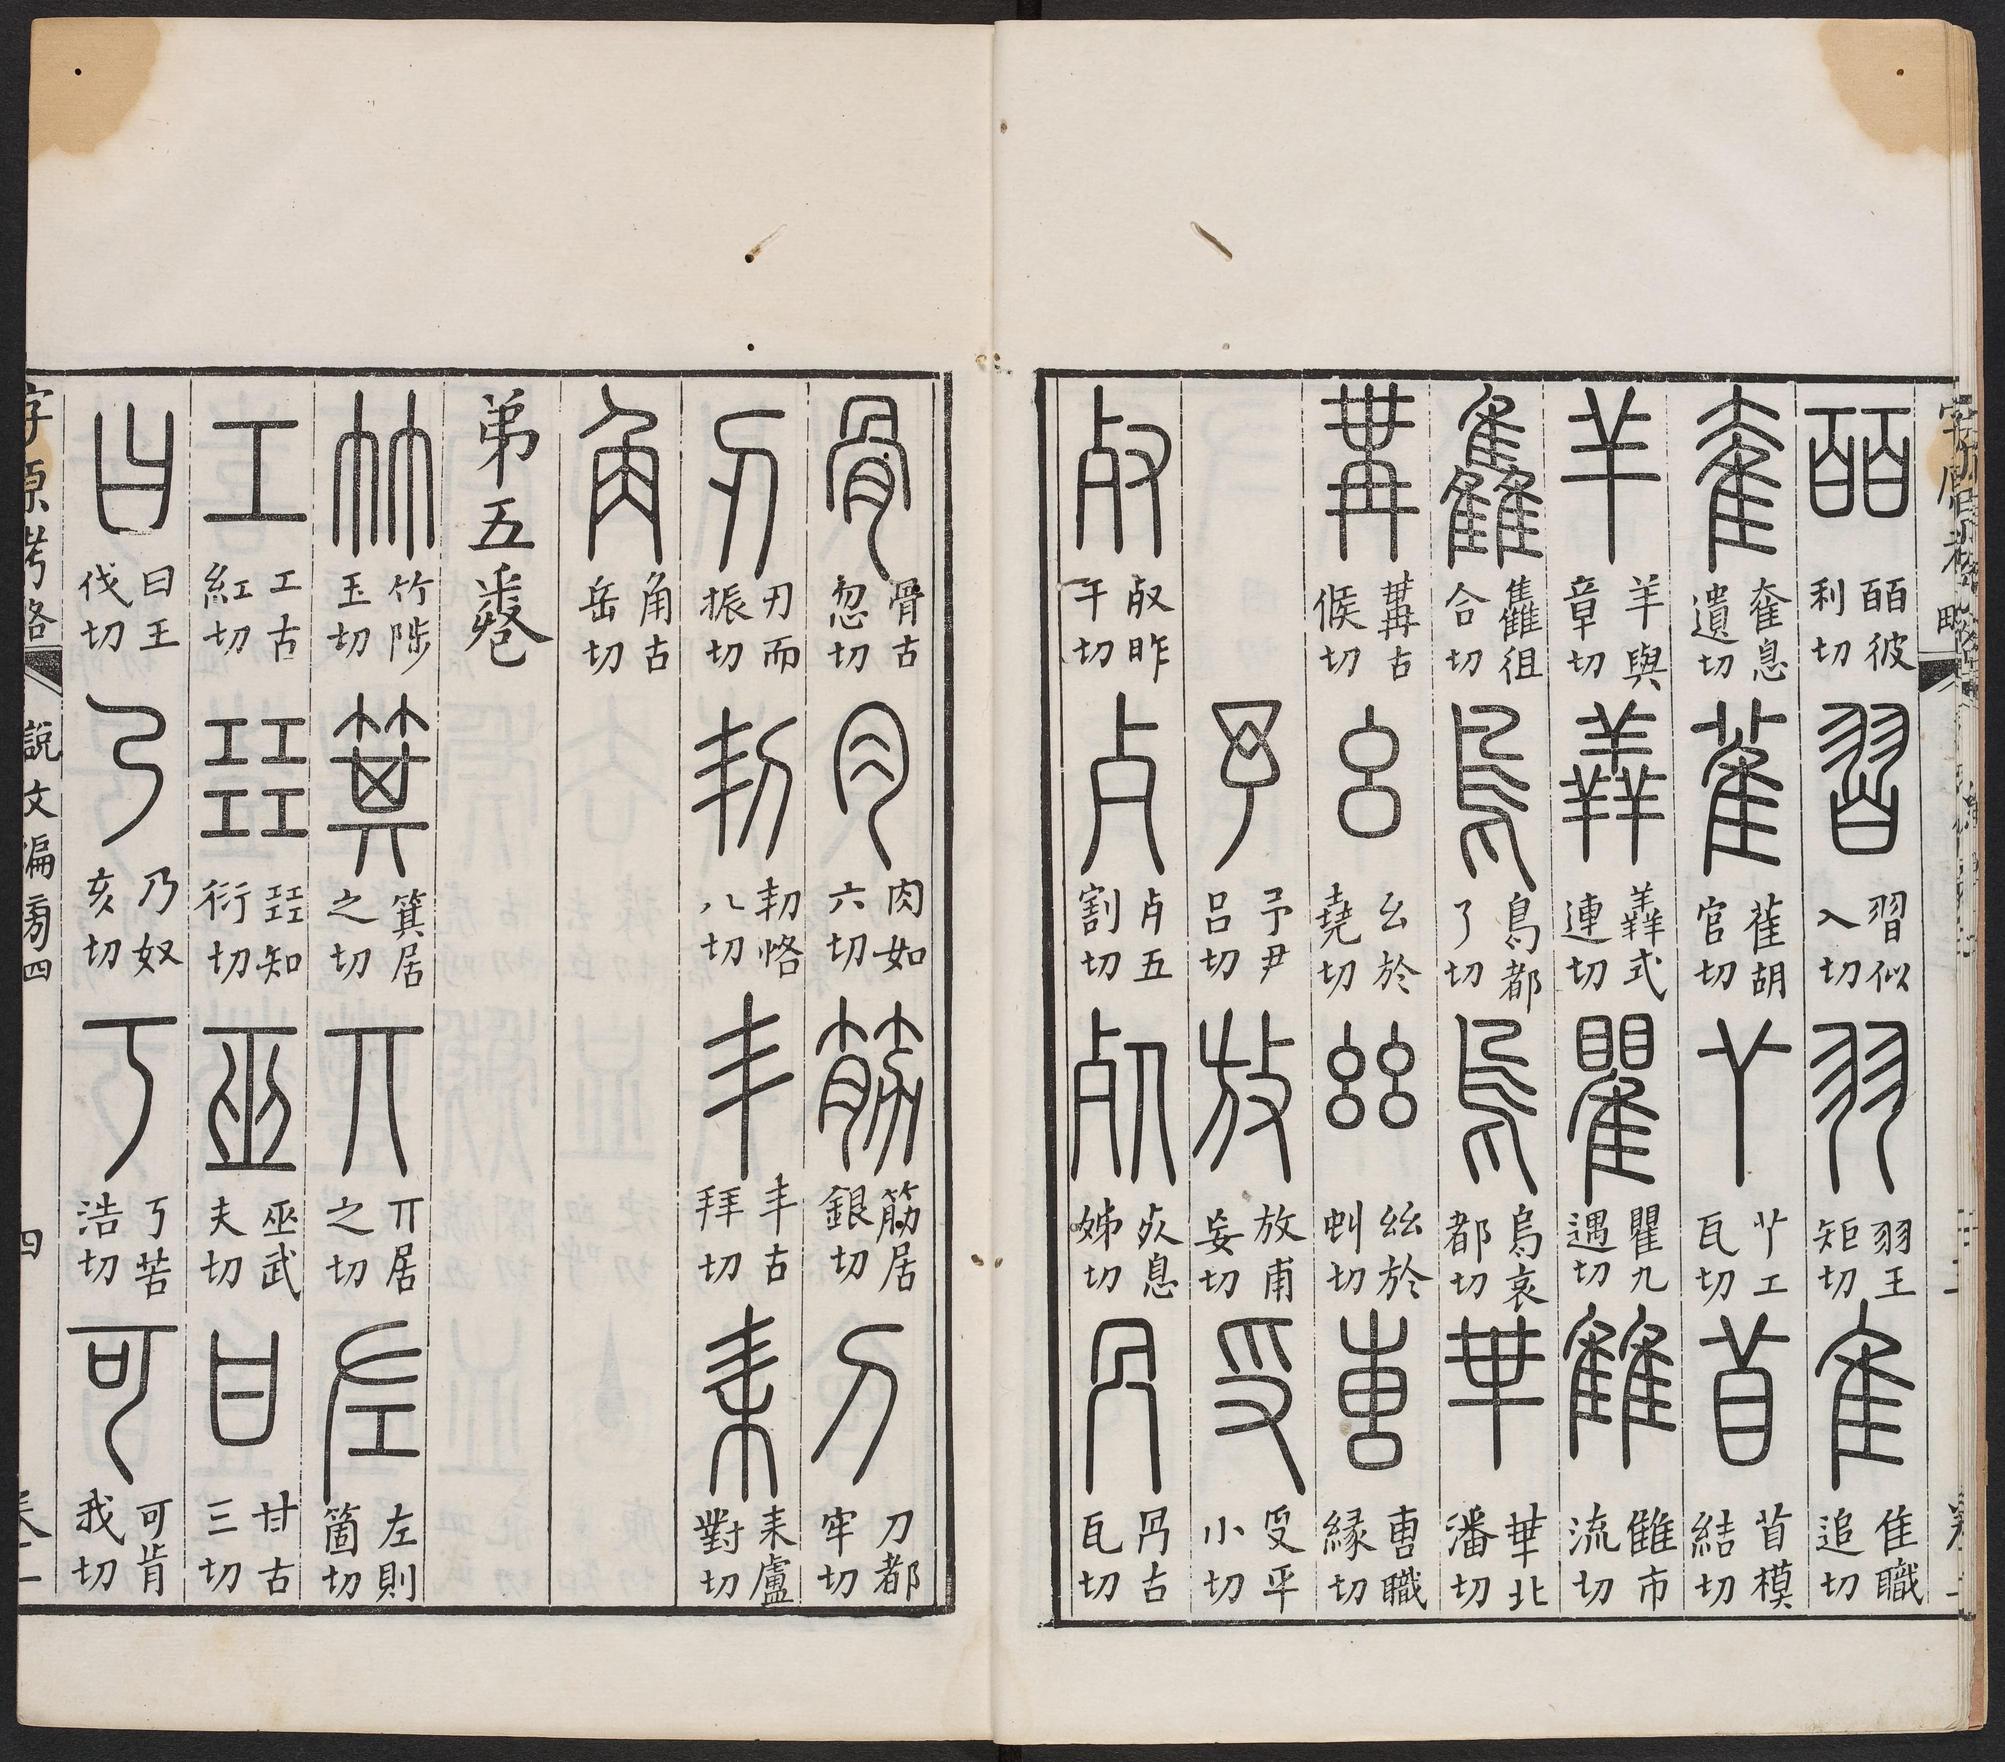 皕 皕彼利切 習 習似入切 羽 羽王矩切 隹 隹職追切
奞 奞息遺切 雈 雈胡官切 𦫳 𦫳工瓦切 苜 苜模結切
羊 羊與章切 羴 羴式連切 瞿 瞿九遇切 雔 雔市流切
雥 雥徂合切 鳥 鳥都了切 烏 烏哀都切 𠦒 𠦒北潘切
冓 冓古候切 幺 幺於堯切 𢆶 𢆶於虯切 叀 叀職緣切
予 予尹呂切 放 放甫妄切 𠬪 𠬪平小切
𣦼 𣦼昨午切 歺 歺五割切 死 死息姊切 冎 冎古瓦切
骨 骨古忽切 肉 肉如六切 筋 筋居銀切 刀 刀都牢切
刃 刃而振切 㓞 㓞恪八切 丯 丯古拜切 耒 耒盧對切
角 角古岳切
弟五卷
竹 竹陟玉切 箕 箕居之切 丌 丌居之切 左 左則箇切
工 工古紅切 㠭 㠭知衍切 巫 巫武夫切 甘 甘古三切
曰 曰王伐切 乃 乃奴亥切 丂 丂苦浩切 可 可肯我切
字原考略 說文偏旁四 四